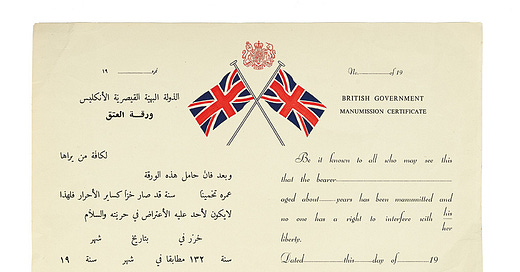 نمرة ............ ١٩
الدولة البهية القيصرية الأنكليس
ورقة العتق
لكافة من يراها
وبعد فان حامل هذه الورقة
عمره تخمينا سنة قد صار حرًا كساير الأحرار فلهذا
لايكون لأحد عليه الأعتراض في حريته والسلام
حرر في بتاريخ شهر
سنة ١٣٢ مطابقا في شهر سنة ١٩
No ............ of 19
BRITISH GOVERNMENT
MANUMISSION CERTIFICATE
Be it known to all who may see this
that the bearer............
aged about ...... years has been manumitted and
no one has a right to interfere with his/her
liberty.
Dated ............ this day of ............ 19